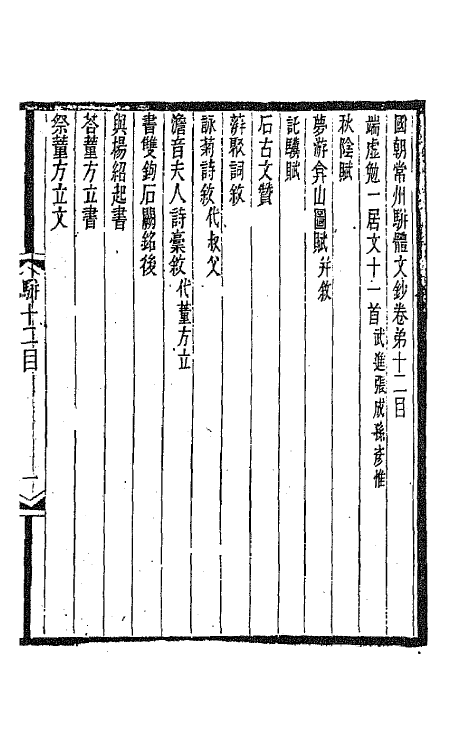 國朝常州駢體文鈔卷弟十二目
端虛勉一居文十一首武進張成孫彥惟
秋陰賦
夢游弇山圖賦并敘
託驥賦
石古文贊
薜駁詞敘
詠菊詩敘代叔父
澹音夫人詩稾敘代董方立
書雙鉤石闕銘後
與楊紹起書
荅董方立書
祭董方立文
駢十二目
一